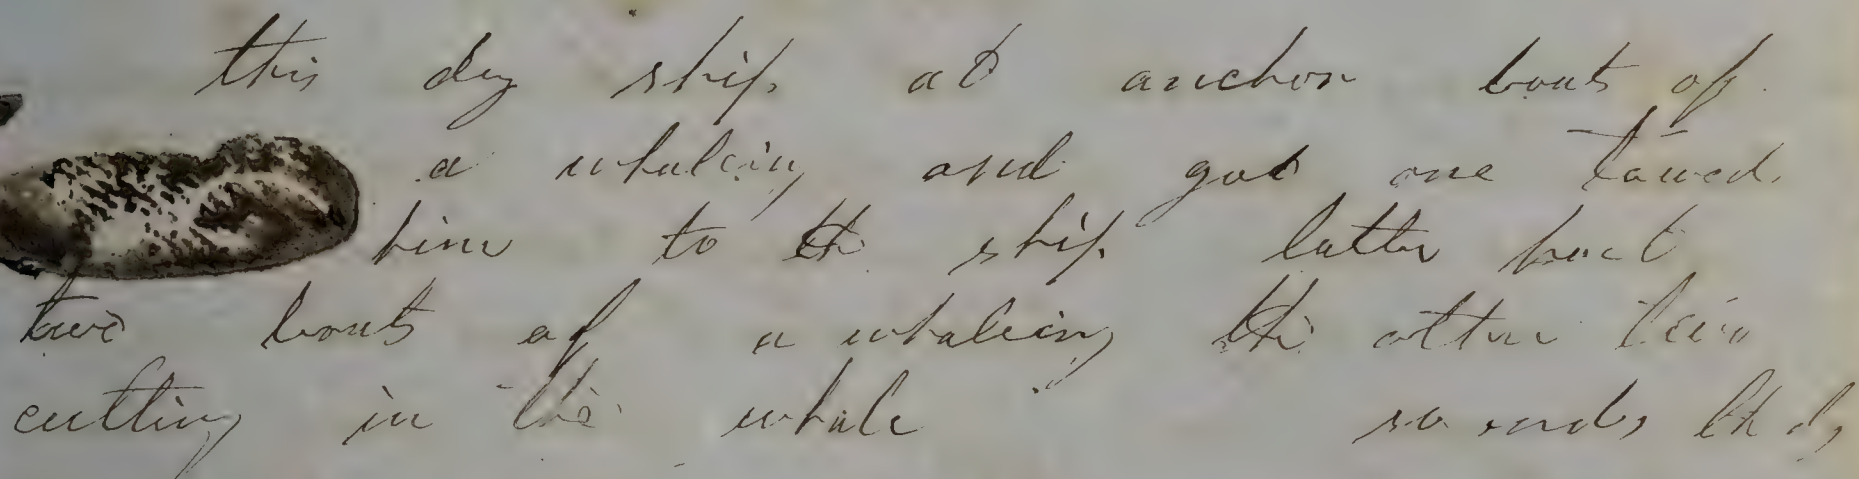 this day ship at anchor boats of
a whaleing and got one towed
him to the ship latter part
two boats of a whaleing the other two
cutting in the whale so ends this day